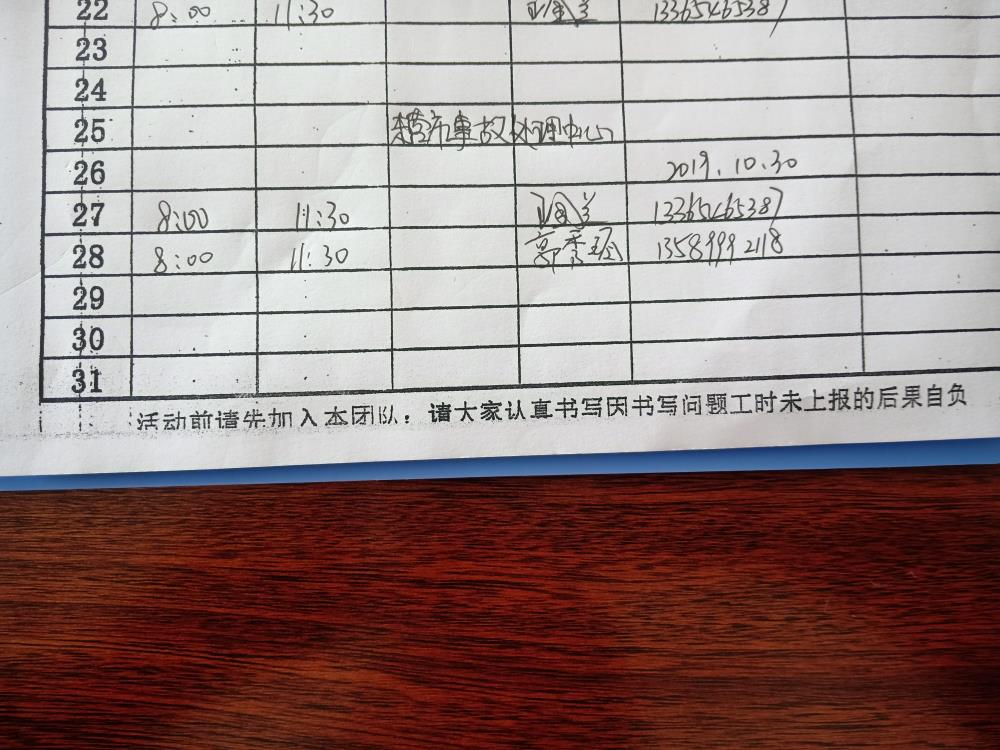 22 8:00 11:30 13365465387
23
24
25 东营市事故处理中心
26 2019.10.30
27 8:00 11:30 13365465387
28 8:00 11:30 郭秀玲 13589992118
29
30
31
活动前请先加入本团队；请大家认真书写因书写问题工时未上报的后果自负